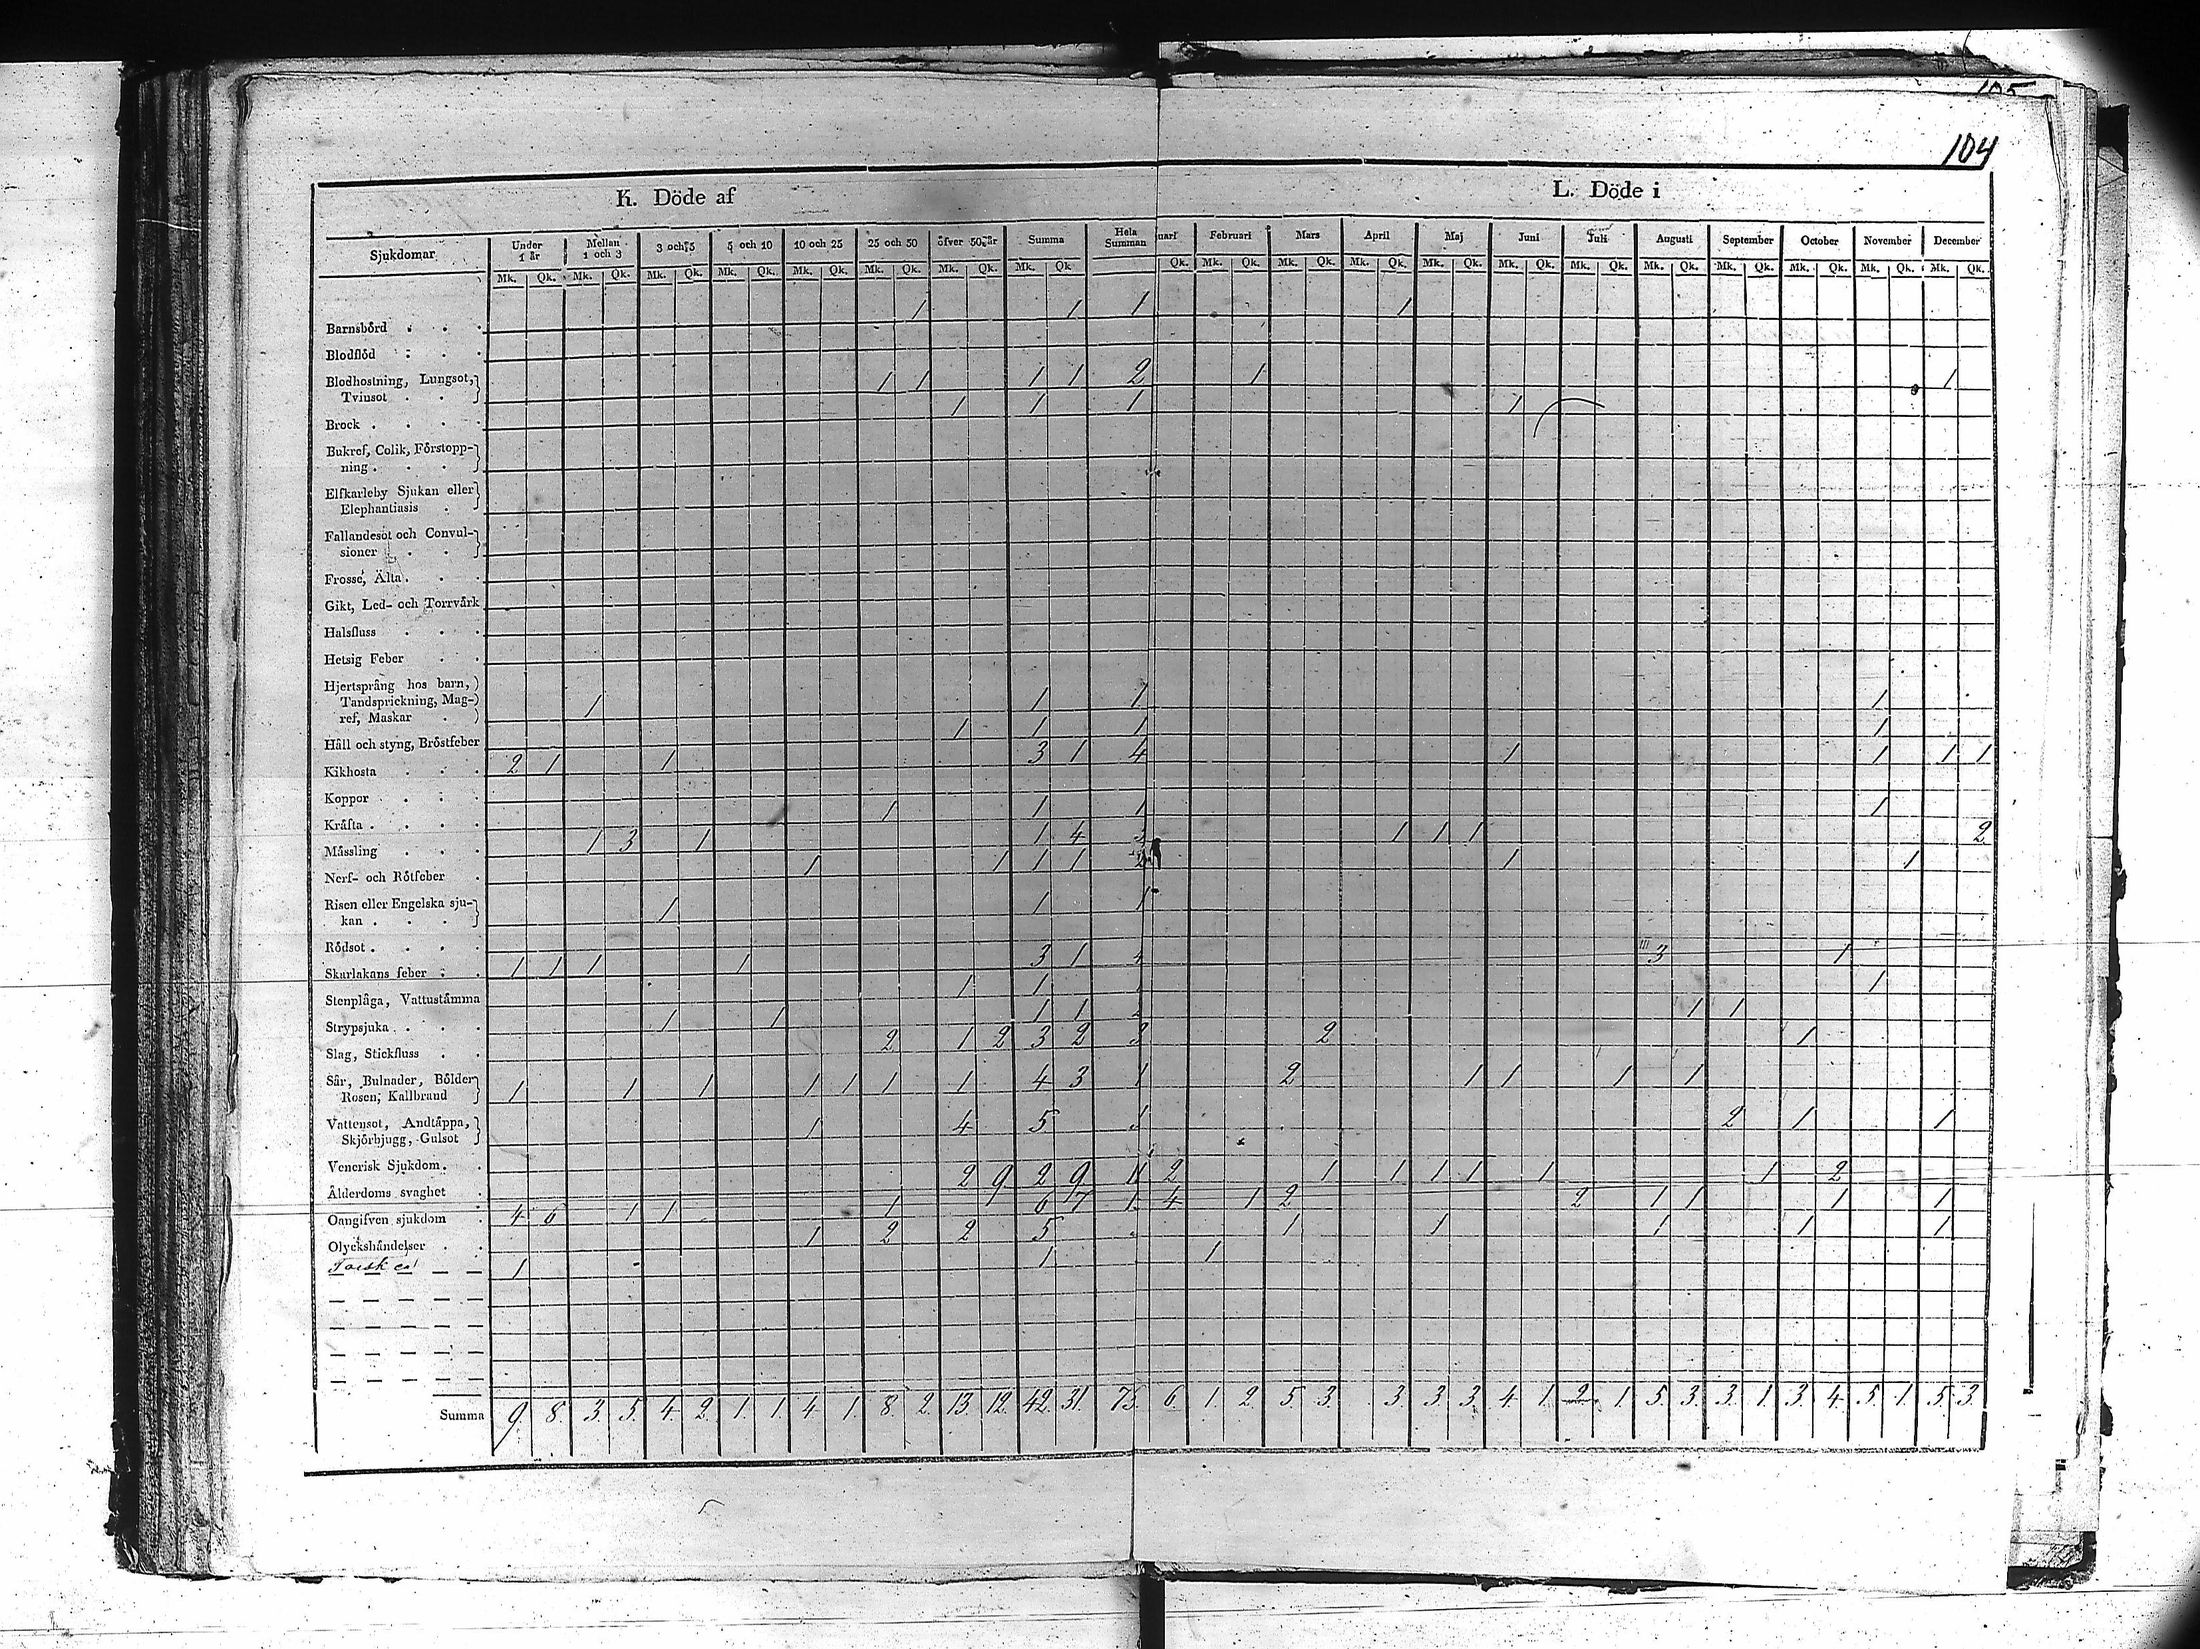 105
104
K. Döde af
L. Döde i
Sjukdomar Under 1 år Mellan 1 och 3 3 och 5 5 och 10 10 och 25 25 och 50 öfver 50 år Summa Hela Summan uari Februari Mars April Maj Juni Juli Augusti September October November December
Mk. Qk. Mk. Qk. Mk. Qk. Mk. Qk. Mk. Qk. Mk. Qk. Mk. Qk. Mk. Qk Qk. Mk. Qk. Mk. Qk. Mk. Qk. Mk. Qk. Mk. Qk. Mk. Qk. Mk. Qk. Mk. Qk. Mk. Qk. Mk. Qk. Mk. Qk.
Barnsbörd 1 1 1 1
Blodflöd
Blodhostning, Lungsot, 1 1 1 1 2 1 1
Tvinsot
Brock 1 1 1 1
Bukref, Colik, Förstopp-
ning
Elfkarleby Sjukan eller
Elephantiasis
Fallandesot och Convul-
sioner
Frossa, Älta
Gikt, Led- och Torrvärk
Halsfluss
Hetsig Feber
Hjertsprång hos barn,
Tandsprickning, Mag- 1 1 1 1
ref, Maskar
Håll och styng, Bröstfeber 1 1 1 1
Kikhosta 2 1 1 3 1 4 1 1 1 1
Koppor
Kräfta 1 1 1 1
Mässling 1 3 1 1 4 1 1 1 2
Nerf- och Rötfeber 1 1 1 1 2 1 1
Risen eller Engelska sju- 1 1 1
kan
Rödsot
Skarlakans feber 1 1 1 1 3 1 4 3 1
Stenplåga, Vattustämma 1 1 1
Strypsjuka 1 1 1 1 2 1 1
Slag, Stickfluss 2 1 2 3 2 2 1
Sår, Bulnader, Bölder 1 1 1 1 1 1 1 4 3 2 1 1 1 1
Rosen, Kallbrand
Vattensot, Andtäppa, 1 4 5 2 1 1
Skjörbjugg, Gulsot
Venerisk Sjukdom
Ålderdoms svaghet 2 9 2 9 11 2 1 1 1 1 1 1 2
Oangifven sjukdom 4 6 1 1 1 6 7 4 1 2 2 1 1 1 1
Olyckshändelser 1 2 2 5 1 1 1 1 1
Torsken 1 1 1
Summa 9. 8. 3. 5. 4. 2. 1. 1. 4. 1. 8. 2. 13. 12. 42. 31. 73. 6. 1. 2. 5. 3. 3. 3. 3. 4. 1. 2. 1. 5. 3. 3. 1. 3. 4. 5. 1. 5. 3.